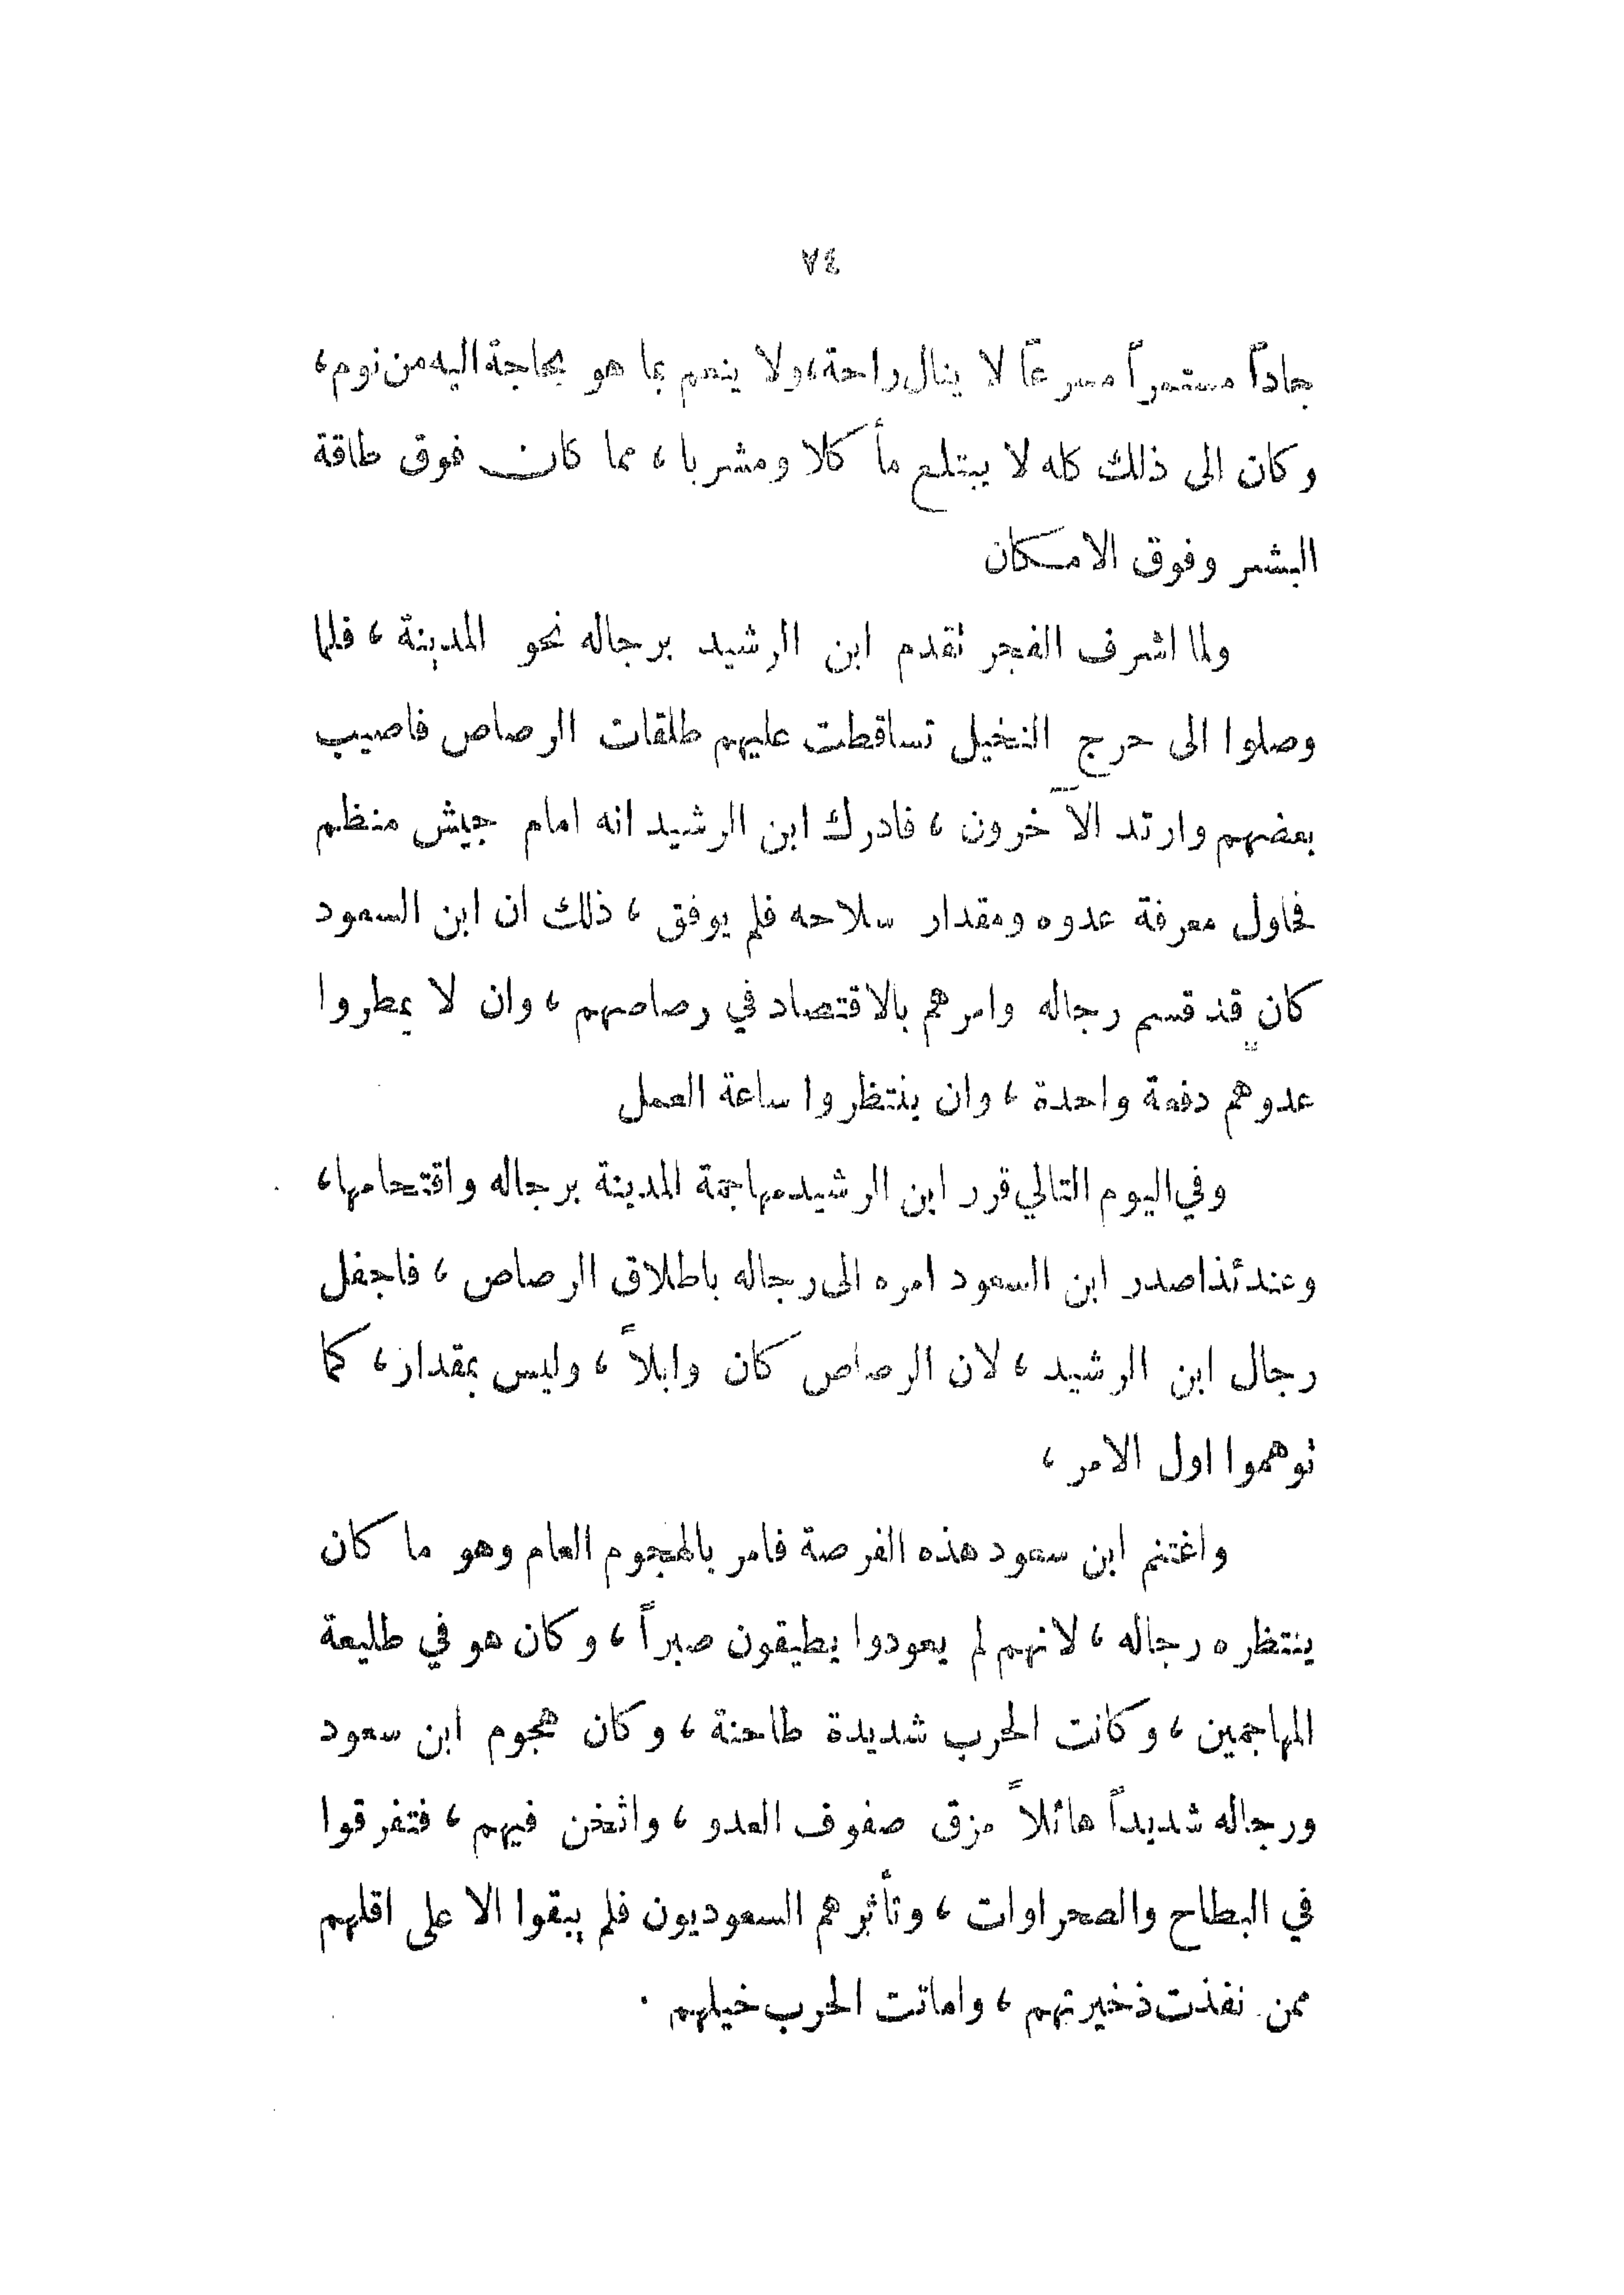 ٧٤
جاداً مستمراً مسرعاً لا ينال راحة، ولا ينعم بما هو بحاجة اليه من نوم،
وكان الى ذلك كله لا يبتلع مأكلا ومشربا، مما كان فوق طاقة
البشر وفوق الامكان
ولما اشرف الفجر تقدم ابن الرشيد برجاله نحو المدينة، فلما
وصلوا الى حرج النخيل تساقطت عليهم طلقات الرصاص فاصيب
بعضهم وارتد الآخرون، فادرك ابن الرشيد انه امام جيش منظم
فحاول معرفة عدوه ومقدار سلاحه فلم يوفق، ذلك ان ابن السعود
كان قد قسم رجاله وامرهم بالاقتصاد في رصاصهم، وان لا يمطروا
عدوهم دفعة واحدة، وان ينتظروا ساعة العمل
وفي اليوم التالي قرر ابن الرشيد مهاجمة المدينة برجاله واقتحامها،
وعندئذ اصدر ابن السعود امره الى رجاله باطلاق الرصاص، فاجفل
رجال ابن الرشيد، لان الرصاص كان وابلاً، وليس بمقدار، كما
توهموا اول الامر،
واغتنم ابن سعود هذه الفرصة فامر بالهجوم العام وهو ما كان
ينتظره رجاله، لانهم لم يعودوا يطيقون صبراً، وكان هو في طليعة
المهاجمين، وكانت الحرب شديدة طاحنة، وكان هجوم ابن سعود
ورجاله شديداً هائلاً مزق صفوف العدو، واثخن فيهم، فتفرقوا
في البطاح والصحراوات، وتأثرهم السعوديون فلم يبقوا الا على اقلهم
ممن نفذت ذخيرتهم، واماتت الحرب خيلهم .